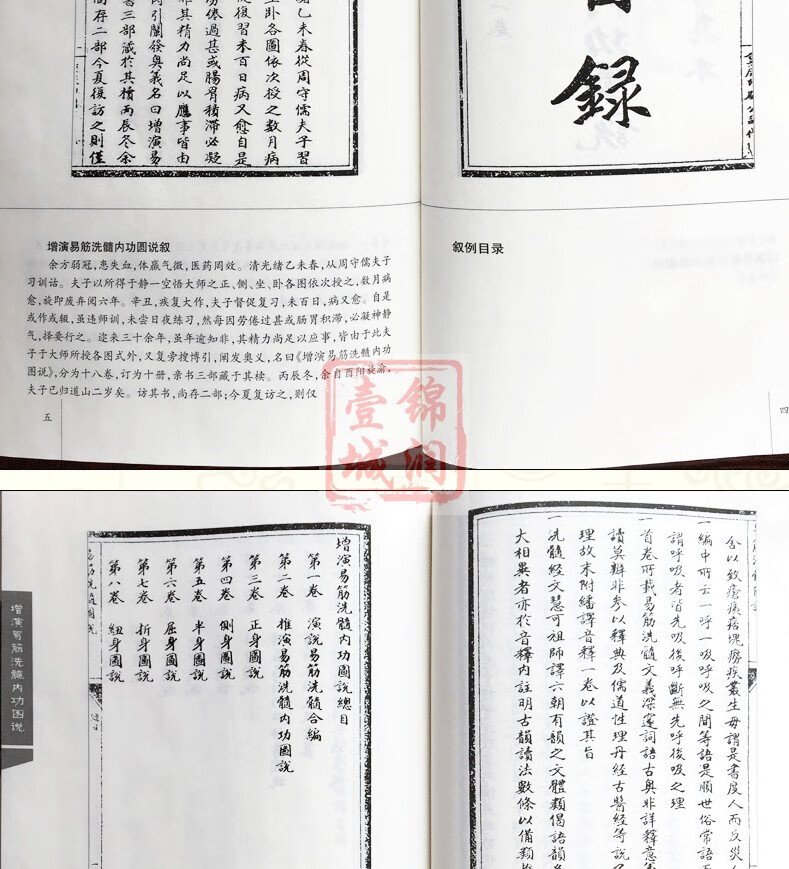 绪乙未春從周守儒夫子習
坐卧各圖依次授之數月病
促復習未百日病又愈自是
勞倦過甚或腸胃積滯必凝
非其精力尚足以應事皆由
引闡發奥義名曰增演易
書三部藏於其櫝丙辰冬余
尚存二部今夏復訪之則僅
錄
增演易筋洗髓内功圆说叙
余方弱冠,患失血,体羸气微,医药罔效。清光绪乙未春,从周守儒夫子
习训诂。夫子以所得于静一空悟大师之正、侧、坐、卧各图依次授之,数月病
愈,旋即废弃阅六年。辛丑,疾复大作,夫子督促复习,未百日,病又愈。自是
或作或辍,虽违师训,未尝日夜练习,然每因劳倦过甚或肠胃积滞,必凝神静
气,择要行之。迩来三十余年,虽年逾知非,其精力尚足以应事,皆由于此夫
子于大师所授各图式外,又复旁搜博引,阐发奥义,名曰《增演易筋洗髓内功
图说》,分为十八卷,订为十册,亲书三部藏于其椟。丙辰冬,余自酉阳旋渝,
夫子已归道山二岁矣。访其书,尚存二部;今夏复访之,则仅
五
叙例目录
四
锦润壹城
舍以致瘡痍痞塊癆疾叢生毋謂是書度人而反災人
一編中所云一呼一吸呼吸之間等語是順世俗常語
謂呼吸者皆先吸後呼斷無先呼後吸之理
一首卷所載易筋洗髓文義深邃詞語古奥非詳釋意
讀莫辨非参以釋典及儒道性理丹經古醫經等說
理故末附繙譯音釋一卷以證其旨
一洗髓經文慧可祖師譯六朝有韻之文體類偈語韻
大相異者亦於音釋内註明古韻讀法數條以備類
增演易筋洗髓内功圖說總目
第一卷 演說易筋洗髓合編
第二卷 推演易筋洗髓内功圖說
第三卷 正身圖說
第四卷 側身圖說
第五卷 半身圖說
第六卷 屈身圖說
第七卷 折身圖說
第八卷 紐身圖說
增演易筋洗髓内功图说